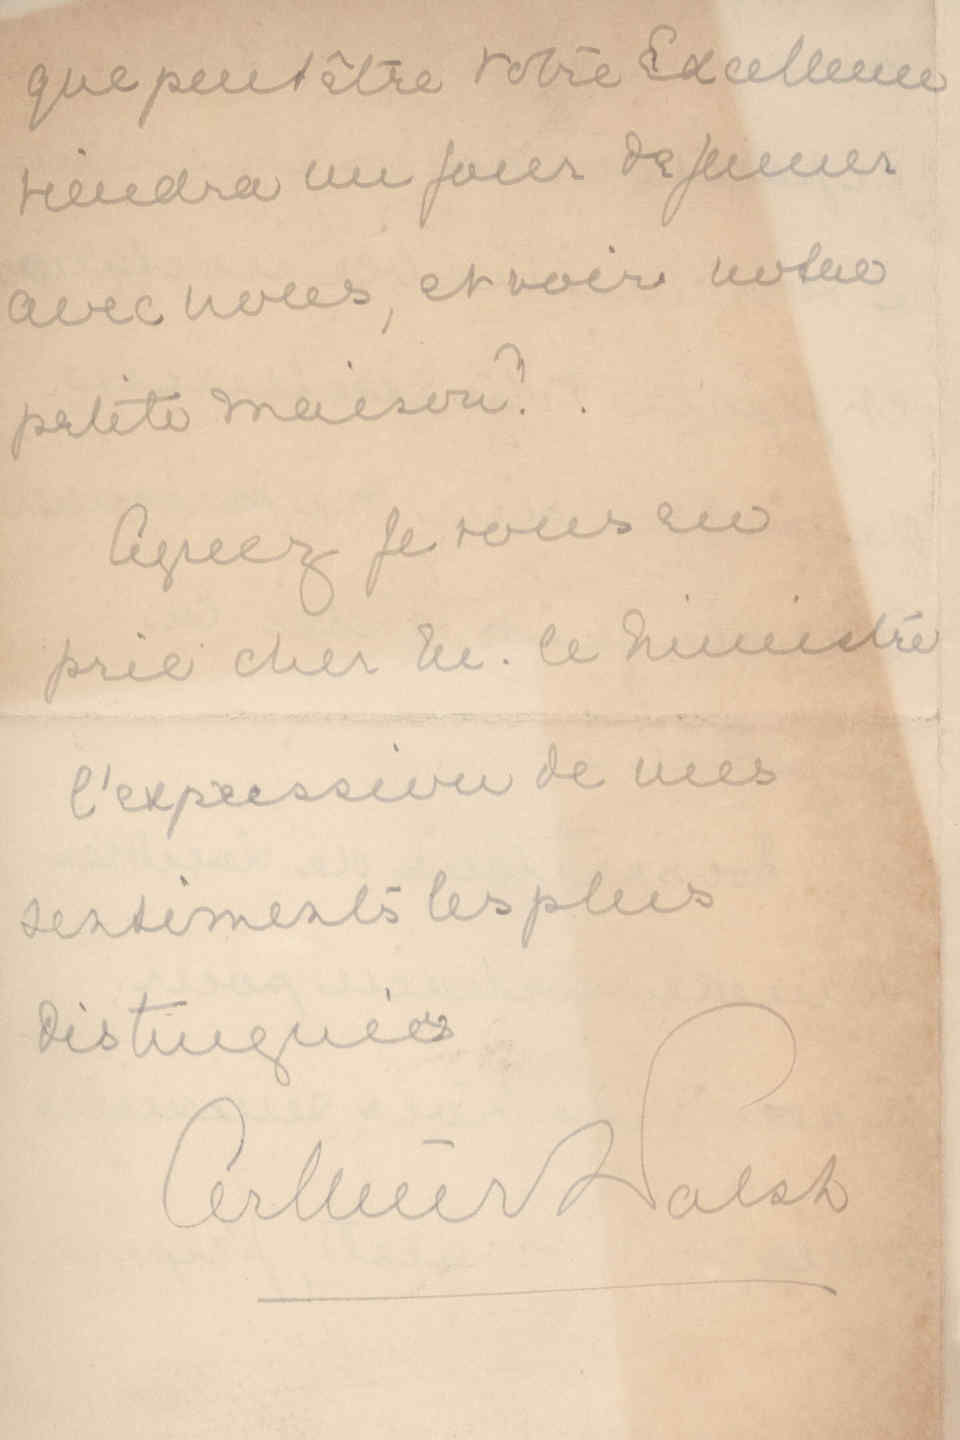 que peut être votre Excellence
viendra un jour dejeuner
avec nous, et voir notre
petite maison?.
Agreez je vous en
prie cher M. le Ministre
l'expression de mes
sentiments les plus
distinguées
Arthur Walsh